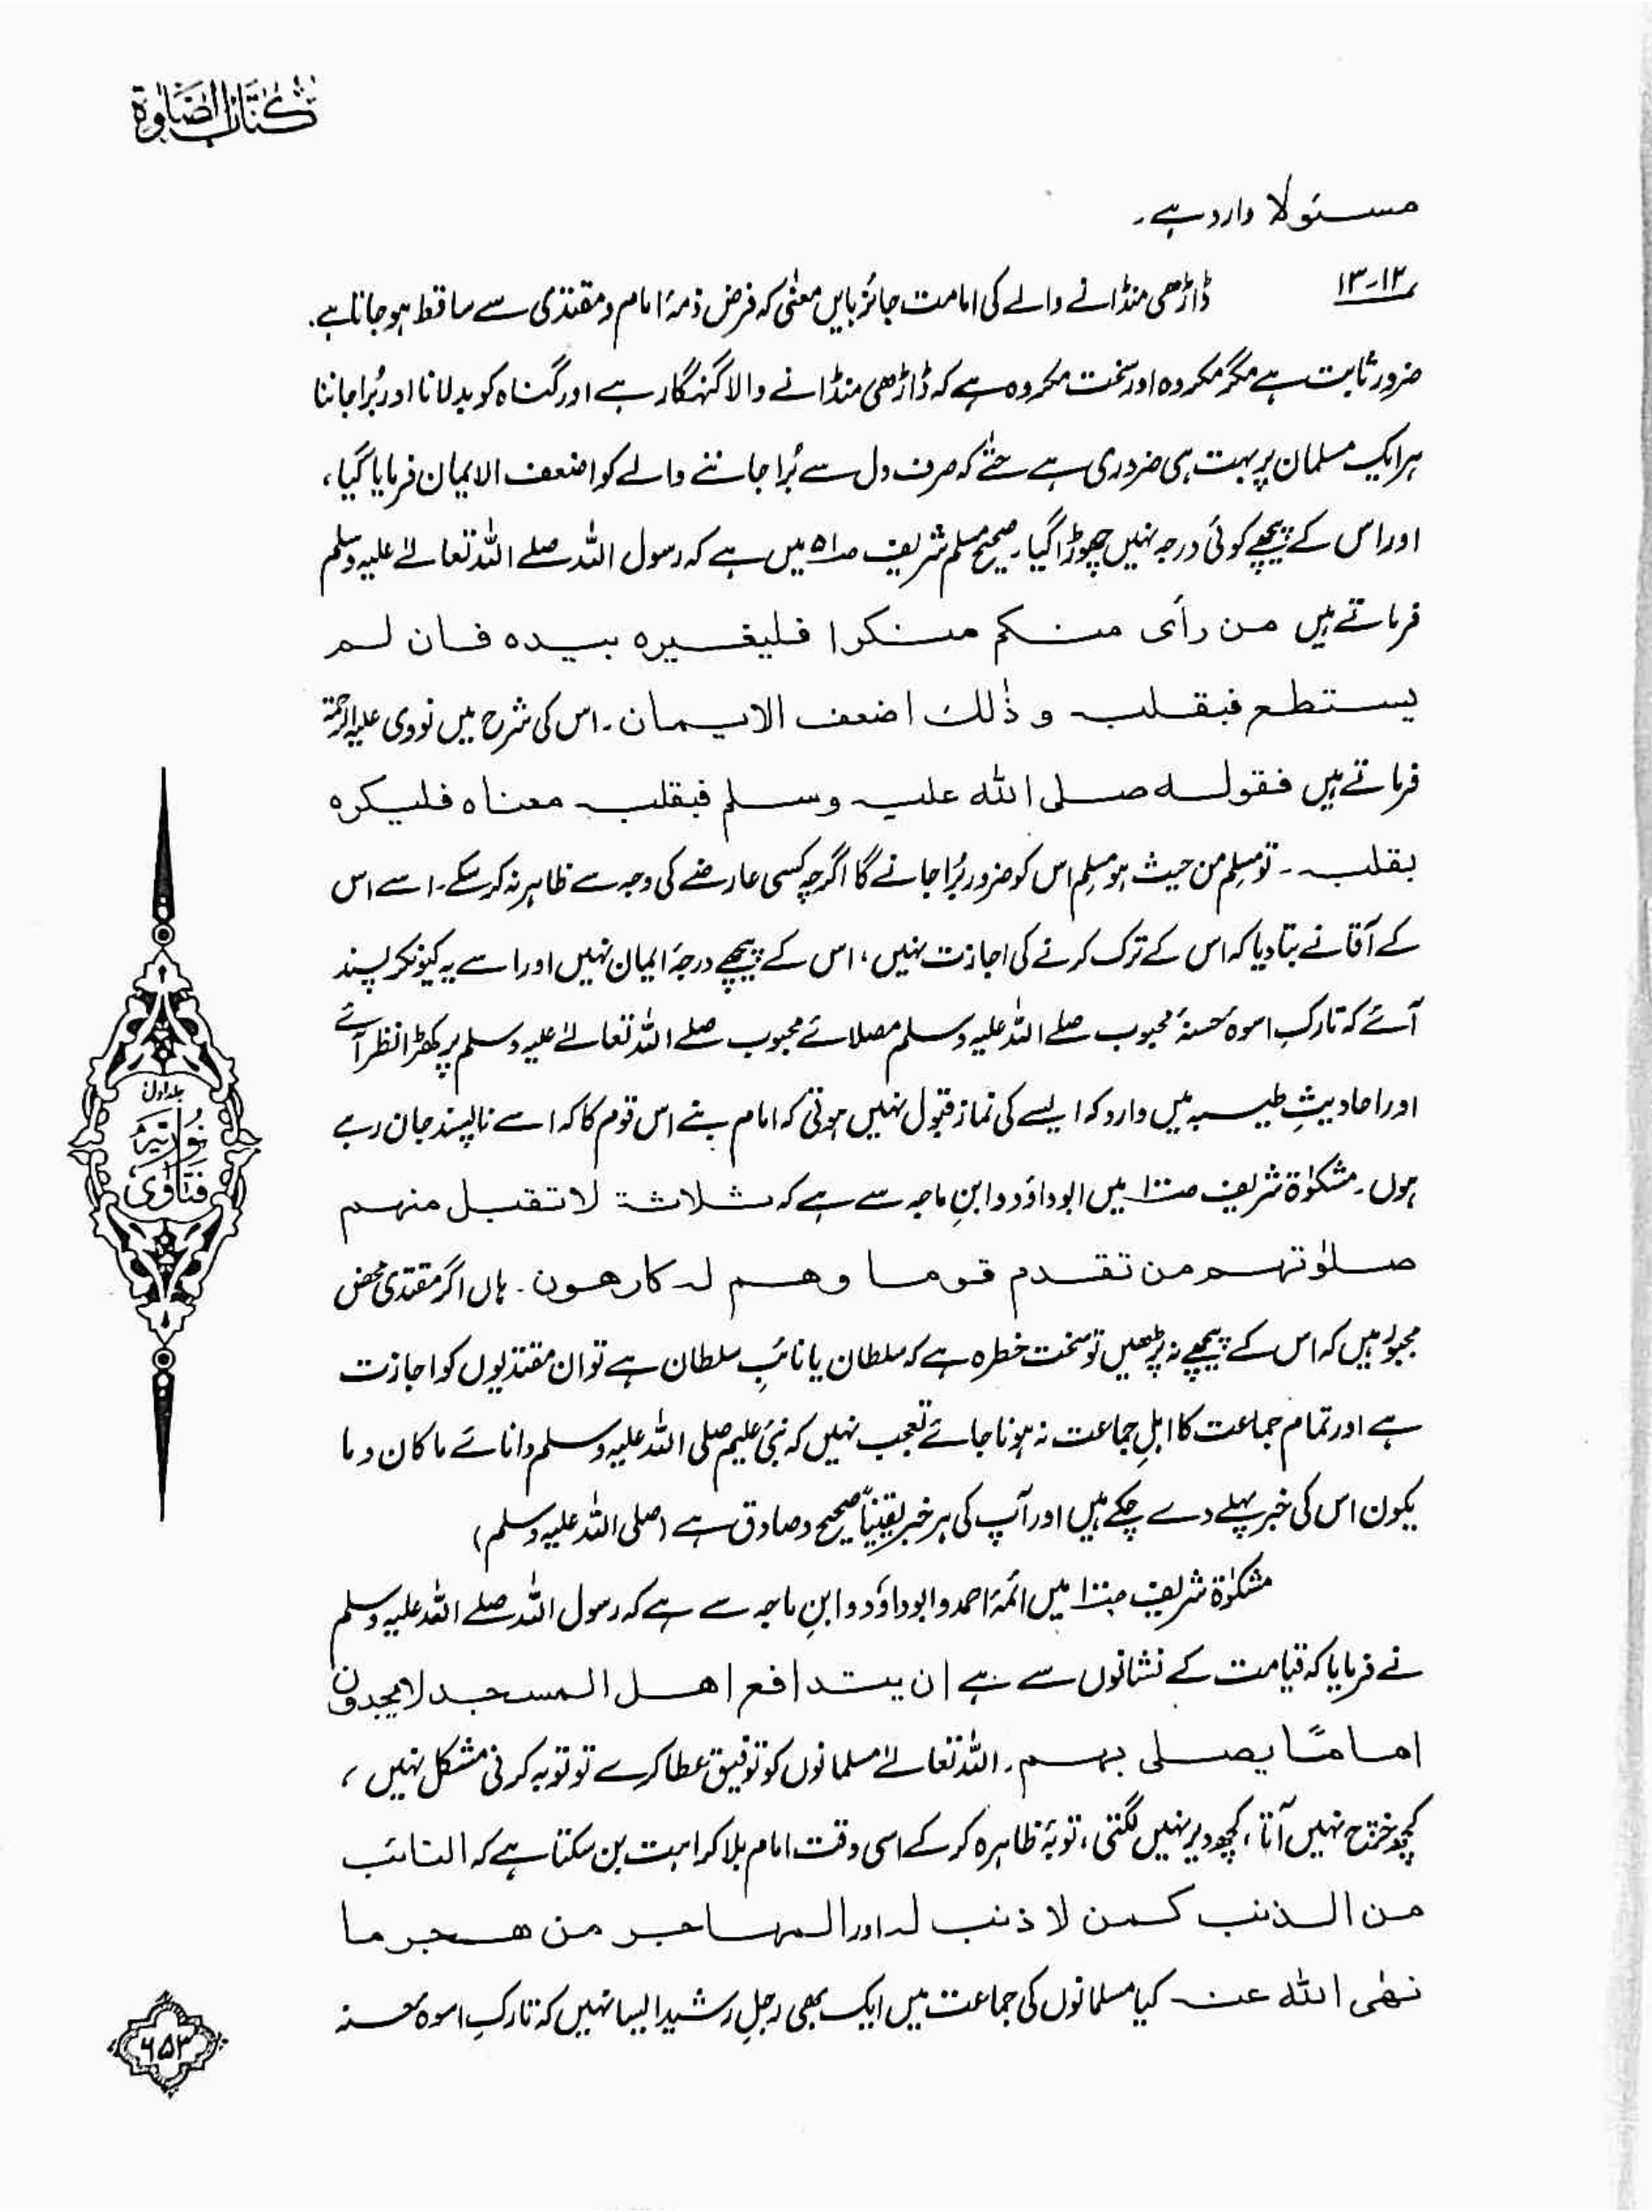 کتاب الصلوٰۃ
مسئولا وارد ہے۔
۱۲-۱۳ ڈاڑھی منڈانے والے کی امامت جائز بایں معنٰی کہ فرض ذمۂ امام و مقتدی سے ساقط ہو جاتا ہے۔
ضرور ثابت ہے مگر مکروہ اور سخت مکروہ ہے کہ ڈاڑھی منڈانے والا گنہگار ہے اور گناہ کو بدلانا اور بُرا جاننا
ہر ایک مسلمان پر بہت ہی ضروری ہے حتّٰے کہ صرف دل سے بُرا جاننے والے کو اضعف الایمان فرمایا گیا،
اور اس کے پیچھے کوئی درجہ نہیں چھوڑا گیا۔ صحیح مسلم شریف صـ۵۱ میں ہے کہ رسول اللہ صلے اللہ تعالےٰ علیہ وسلم
فرماتے ہیں من رأی منکم منکرا فلیغیرہ بیدہ فان لم
یستطع فبقلبہ و ذٰلک اضعف الایمان۔ اس کی شرح میں نووی علیہ الرحمۃ
فرماتے ہیں فقولہ صلی اللہ علیہ وسلم فبقلبہ معناہ فلیکرہ
بقلبہ۔ تو مسلِم من حیث ہو مسلِم اس کو ضرور بُرا جانے گا اگرچہ کسی عارضے کی وجہ سے ظاہر نہ کر سکے۔ اسے اس
کے آقا نے بتا دیا کہ اس کے ترک کرنے کی اجازت نہیں، اس کے پیچھے درجۂ ایمان نہیں اور اسے یہ کیونکر پسند
آئے کہ تارکِ اسوۂ حسنۂ محبوب صلے اللہ علیہ وسلم مصلائے محبوب صلے اللہ تعالےٰ علیہ وسلم پر کھڑا نظر آئے
اور احادیثِ طیبہ میں وارد کہ ایسے کی نماز قبول نہیں ہوتی کہ امام بنے اس قوم کا کہ اسے ناپسند جان رہے
ہوں۔ مشکوٰۃ شریف صـ۱۰۰ میں ابوداؤد و ابنِ ماجہ سے ہے کہ ثلاثۃ لا تقبل منہم
صلٰوتہم من تقدم قوما وھم لہ کارھون۔ ہاں اگر مقتدی محض
مجبور ہیں کہ اس کے پیچھے نہ پڑھیں تو سخت خطرہ ہے کہ سلطان یا نائبِ سلطان ہے تو ان مقتدیوں کو اجازت
ہے اور تمام جماعت کا اہلِ جماعت نہ ہونا جائے تعجب نہیں کہ نبیٔ علیم صلی اللہ علیہ وسلم دانائے ما کان و ما
یکون اس کی خبر پہلے دے چکے ہیں اور آپ کی ہر خبر یقیناً صحیح و صادق ہے (صلی اللہ علیہ وسلم)
مشکوٰۃ شریف صـ۱۰۰ میں ائمۂ احمد و ابوداؤد و ابنِ ماجہ سے ہے کہ رسول اللہ صلے اللہ علیہ وسلم
نے فرمایا کہ قیامت کے نشانوں سے ہے ان یتدافع اھل المسجد لا یجدون
اماما یصلی بہم۔ اللہ تعالےٰ مسلمانوں کو توفیق عطا کرے تو توبہ کرنی مشکل نہیں،
کچھ خرچ نہیں آتا، کچھ دیر نہیں لگتی، توبۂ ظاہرہ کر کے اسی وقت امام بلا کراہت بن سکتا ہے کہ التائب
من الذنب کمن لا ذنب لہ اور المہاجر من ھجر ما
نھٰی اللہ عنہ کیا مسلمانوں کی جماعت میں ایک بھی رجلِ رشید ایسا نہیں کہ تارکِ اسوۂ حسنہ
جلد اول
فتاویٰ نوریہ
۶۵۳